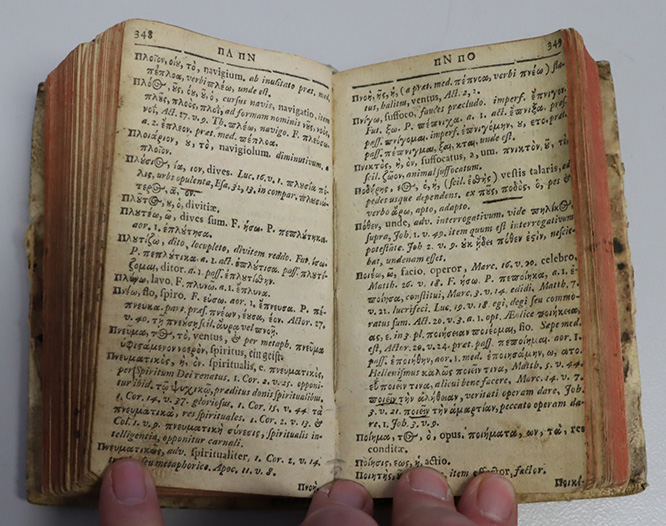 348
ΠΛ ΠΝ
Πλοῖον, ου, τὸ, navigium. ab inusitato præt. med.
πέπλοα, verbi πλέω, unde est.
cursus navis, navigatio, item
πλῦς, πλοὸς, πλοῒ, ad formam nominis νῦς, νοὸς,
νοῒ, Act. 27. v. 9. Th. πλέω, navigo. F. πλεύσω.
a. 1. ἔπλευσα. præt. med. πέπλοα.
Πλοιάριον, ου, τὸ, navigiolum. diminutivum. a
πλοῖον.
Πλύσιος, ία, ιον, dives. Luc. 16. v. 1. πλυσία πό-
λις, urbs opulenta, Esa. 32, 13. in compar. πλυσιώ-
τερος, α, ον.
Πλῦτος, ου, ὁ, divitiæ.
Πλυτέω, ῶ, dives sum. F. ήσω. P. πεπλύτηκα.
aor. 1. ἐπλύτησα.
Πλυτίζω, dito, locupleto, divitem reddo. Fut. ίσω.
P. πεπλύτικα. a. 1. act. ἐπλύτισα. pass. πλυτί-
ζομαι, ditor. a. 1. pass. ἐπλυτίσθην.
Πλύνω, lavo. F. πλυνῶ. a. 1. ἔπλυνα.
Πνέω, flo, spiro. F. εύσω. aor. 1. ἔπνευσα. P. πέ-
πνευκα. part. præs. πνέων, έυσα, έον. Actor. 27.
v. 40. τῇ πνεύσῃ scil. αὔρᾳ vel πνοῇ.
Πνεῦμα, τος, τὸ, ventus, & per metaph. πνεῦμα
ὑφιστάμενον νοερὸν, spiritus, ein geist.
Πνευματικὸς, ὴ, ὸν. spiritualis, e. πνευματικὸς,
per Spiritum Dei renatus. 1. Cor. 2. v. 15. opponi-
tur ibid. τῷ ψυχικῷ, præditus donis spiritualibus,
1. Cor. 14. v. 37. gloriosus. 1. Cor. 15. v. 44 τὰ
πνευματικὰ, res spirituales. 1. Cor. 2. v. 13. &
Col. 1. v. 9. πνευματικὴ σύνεσις, spiritualis in-
telligentia, opponitur carnali.
Πνευματικῶς, adv. spiritualiter, 1. Cor. 2. v. 14.
metaphorice. Apoc. 11. v. 8.
Πνοὴ
ΠΝ ΠΟ
349
Πνοὴ, ῆς, ἡ, (a præt. med. πέπνοα, verbi πνέω) fla-
tus, halitus, ventus, Act. 2, 2.
Πνίγω, suffoco, fauces præcludo. imperf. ἔπνιγον.
Fut. ξω. P. πέπνιχα. a. 1. act. ἔπνιξα. præs.
pass. πνίγομαι. imperf. ἐπνιγόμην, ου, ετο, præt.
pass. πέπνιγμαι, ξαι, κται. unde est.
Πνικτὸς, ὴ, ὸν, suffocatus, a, um. πνικτὸν, ῦ, τὸ,
scil. ζῶον, animal suffocatum.
Ποδήρης, εος, ὁ, ἡ, (scil. ἐσθὴς) vestis talaris, ad
pedes usque dependens. ex πῦς, ποδὸς, ὁ, pes &
verbo ἄρω, apto, adapto.
Πόθεν, unde, adv. interrogativum. vide πηλίκος,
supra, Job. 1. v. 49. item quum est interrogativum
potestate. Job. 2. v. 9. ὐκ ᾔδει πόθεν ἐστὶν, nescie-
bat, undenam esset.
Ποιέω, ῶ, facio, operor, Marc. 16. v. 20. celebro,
Matth. 26. v. 18. F. ήσω. P. πεποίηκα, a. 1. ἐ-
ποίησα, constitui, Marc. 3. v. 14. edidi, Matth. 7.
v. 21. lucrifeci. Luc. 19. v. 18. egi, degi seu commo-
ratus sum. Act. 20. v. 3. a. 1. opt. Æolice ποιήσεια,
ας, ε. in 3. pl. ποιήσειαν ποιέομαι, fio. Sæpe med.
est, Actor. 20. v. 24. præt. pass. πεποίημαι, aor. 1.
pass. ἐποιήθην, aor. 1. med. ἐποιησάμην, ω, ατο.
Hellenismus καλῶς ποιεῖν τινα, Matth. 5. v. 44.
εὖ ποιεῖν τινα, alicui benefacere, Marc. 14. v. 7.
ποιεῖν τὴν ἀλήθειαν, veritati operam dare, Joh.
3. v. 21. ποιεῖν τὴν ἁμαρτίαν, peccato operam da-
re, 1. Joh. 3. v. 9.
Ποίημα, τος, ὁ, opus. ποιήματα, ων, τὰ, res
conditæ.
Ποίησις, εως, ἡ, actio.
Ποιητὴς, item effector, factor.
Ποικί-